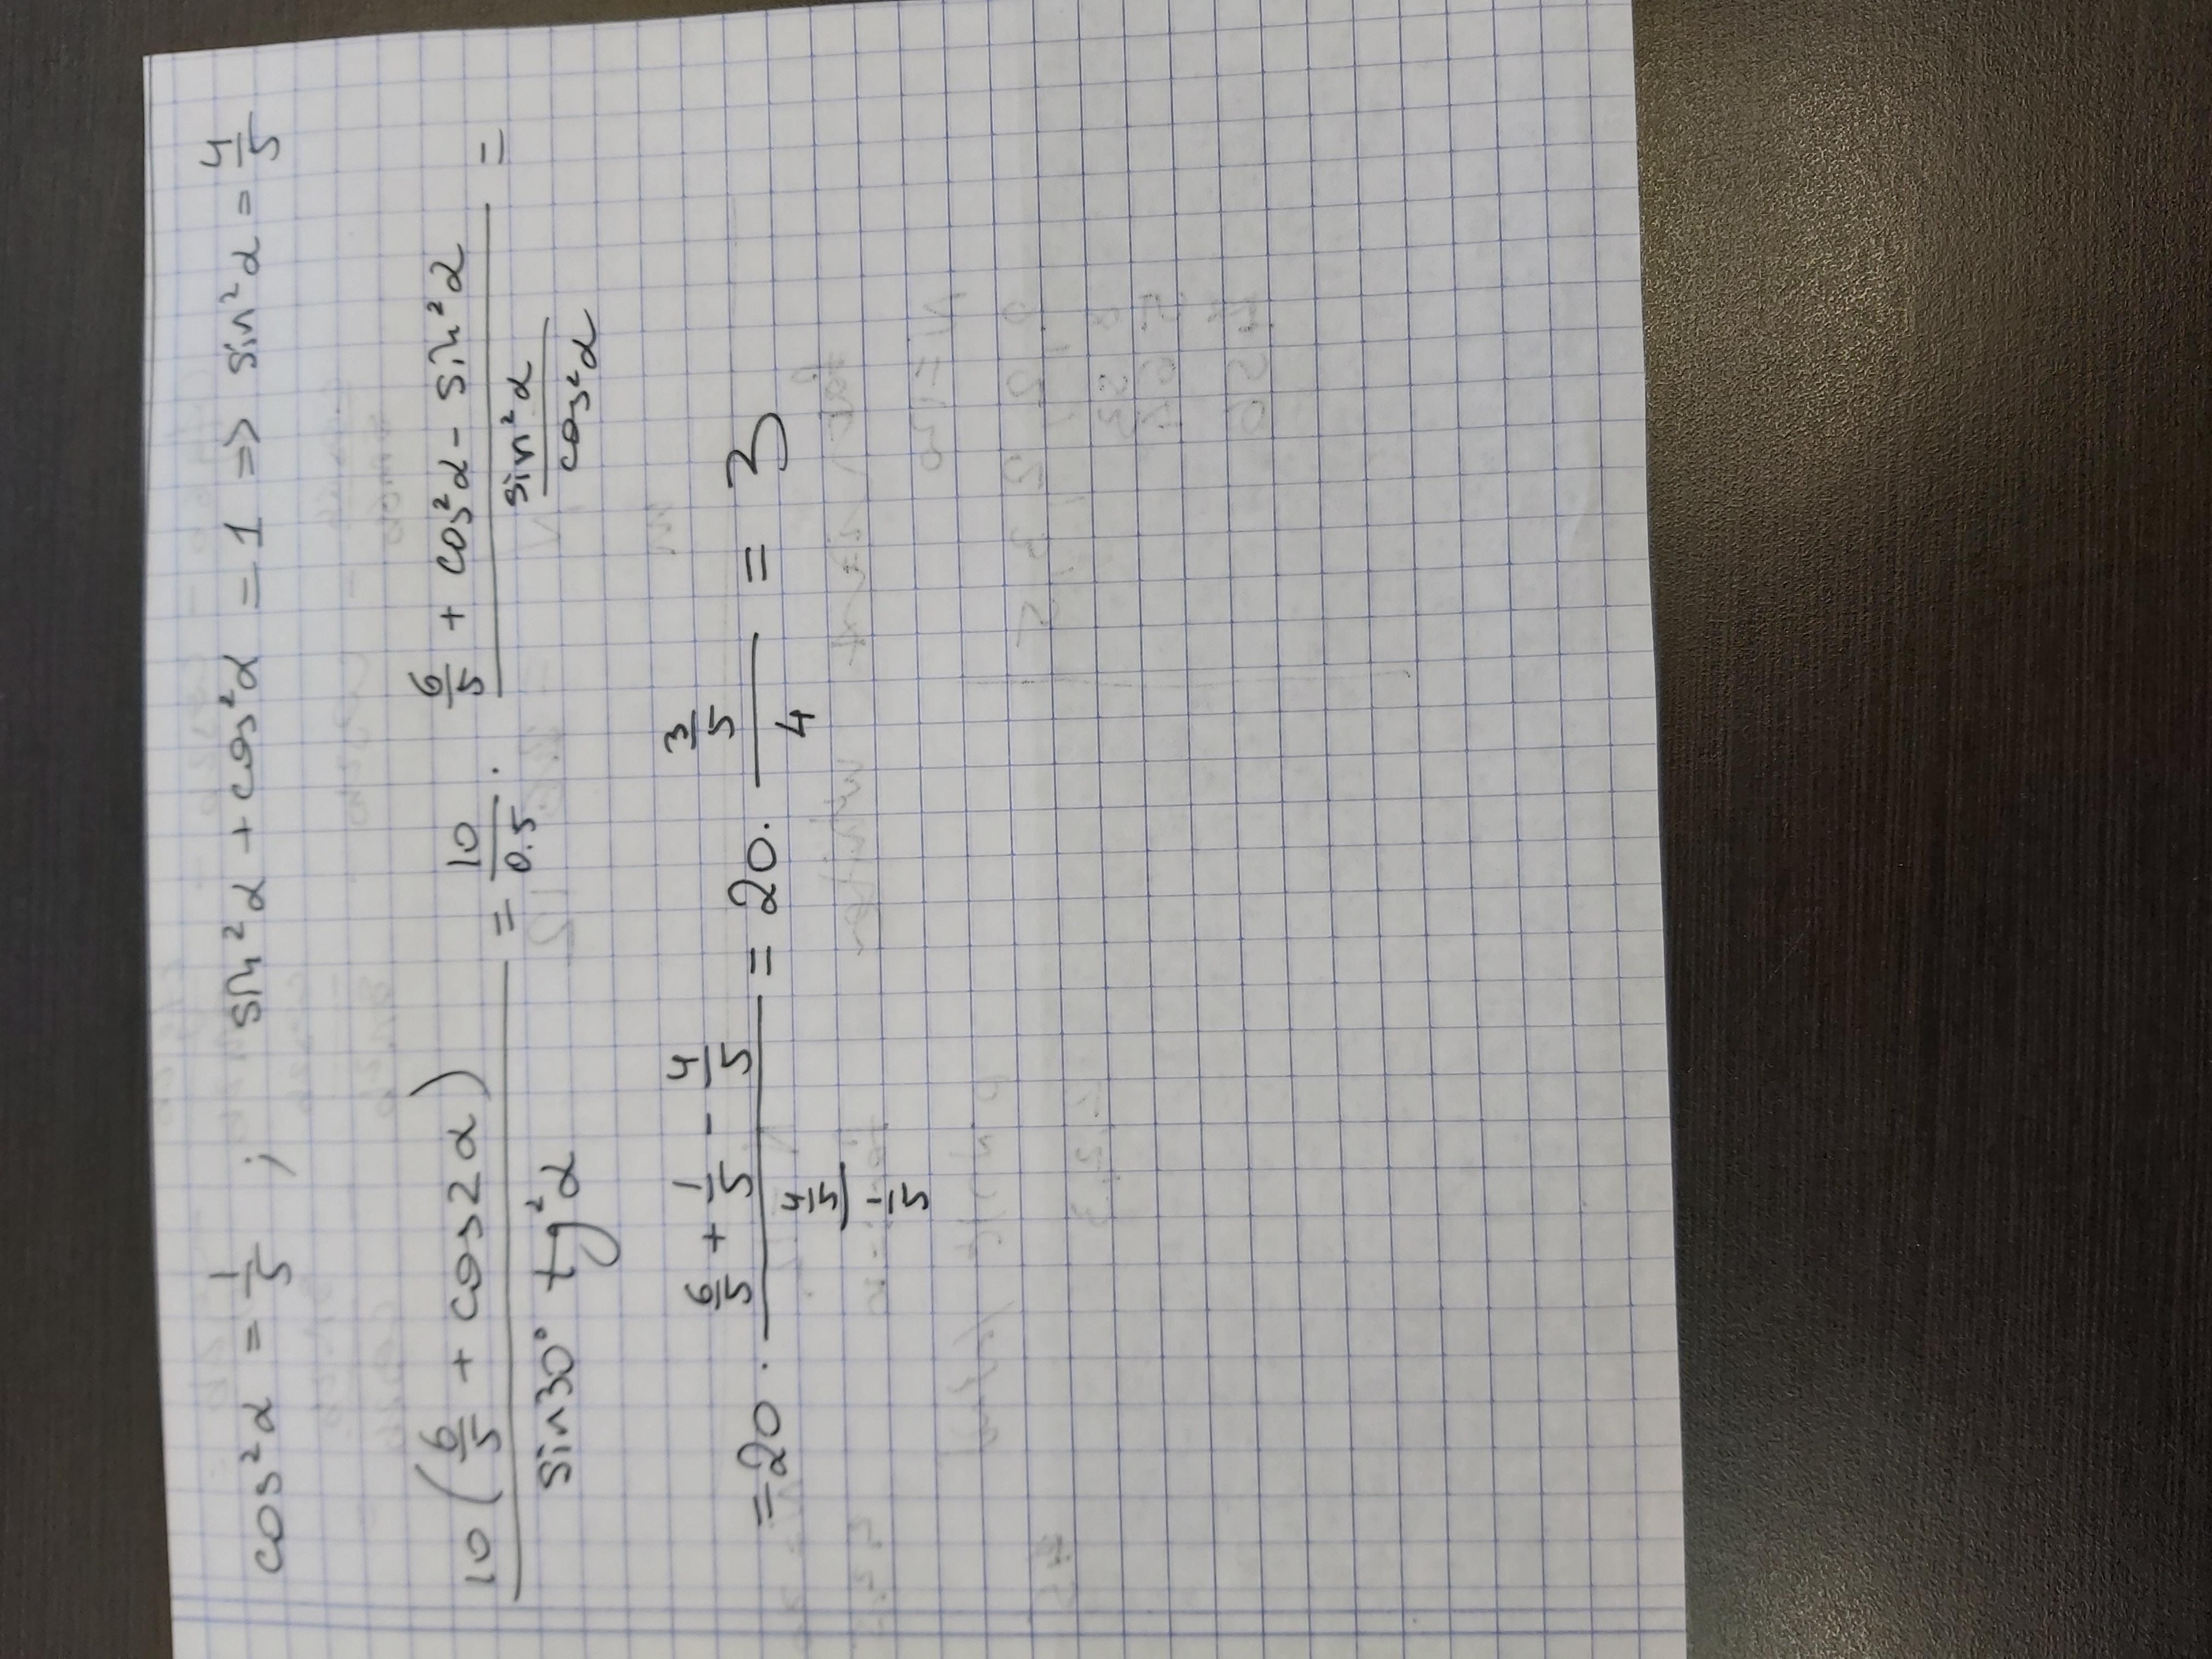 cos²α = 1/5 ; sin²α + cos²α = 1 => sin²α = 4/5
10(6/5 + cos2α) / sin30° tg²α = 10/0.5 · (6/5 + cos²α - sin²α) / (sin²α/cos²α) =
=20 · (6/5 + 1/5 - 4/5) / (4/5 / 1/5) = 20 · (3/5)/4 = 3